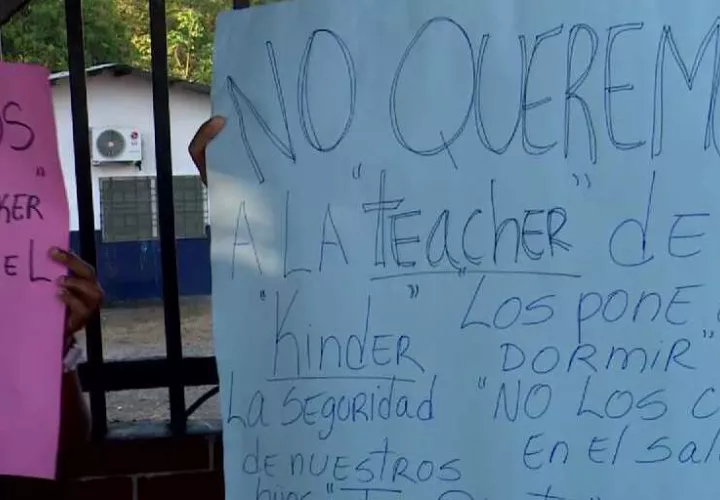 NO QUEREM
A LA "teacher" de
"Kinder"
"Los pone
DORMIR"
La Seguridad
de nuestros
hijos "
"NO LOS C
En El Sal
OS
KER
EL